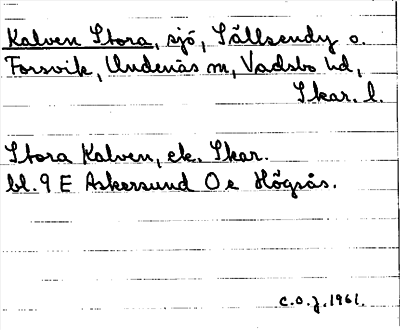 Kalven Stora, sjö, Sällsendy o.
Forsvik, Undenäs sn, Vadsbo hd,
Skar. l.
Stora Kalven, ek. Skar.
bl. 9 E Askersund O e Högsås.
C.O.J. 1961.